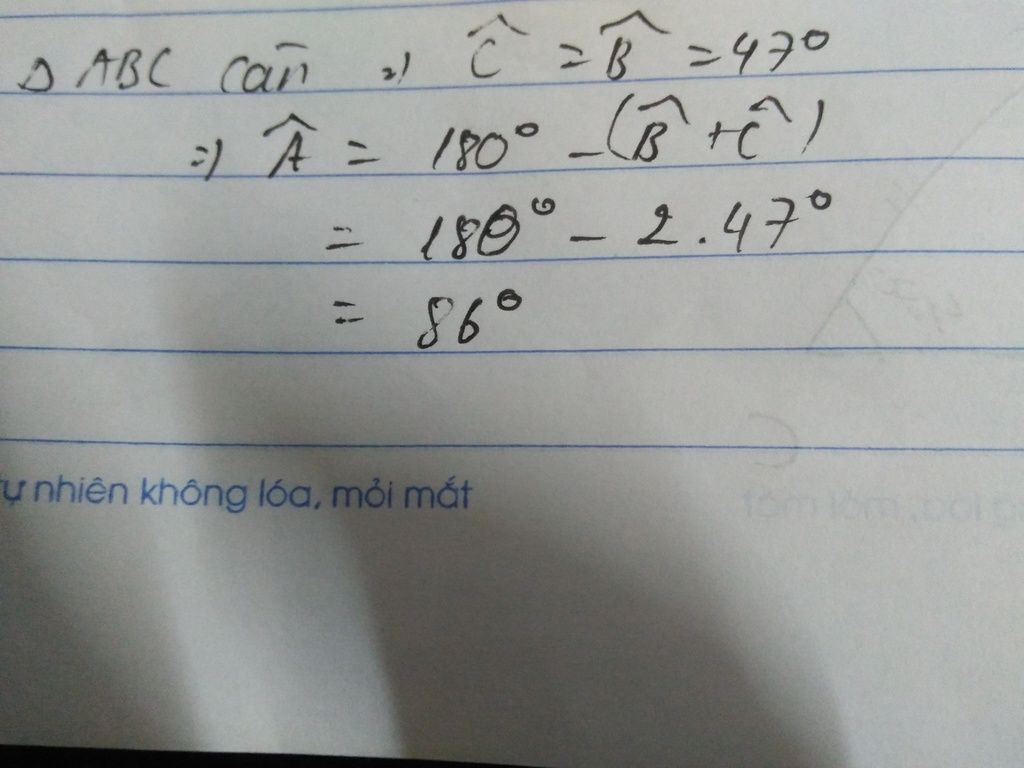 Δ ABC cân => Ĉ = B̂ = 47°
=> Â = 180° - (B̂ + Ĉ)
= 180° - 2.47°
= 86°
tự nhiên không lóa, mỏi mắt